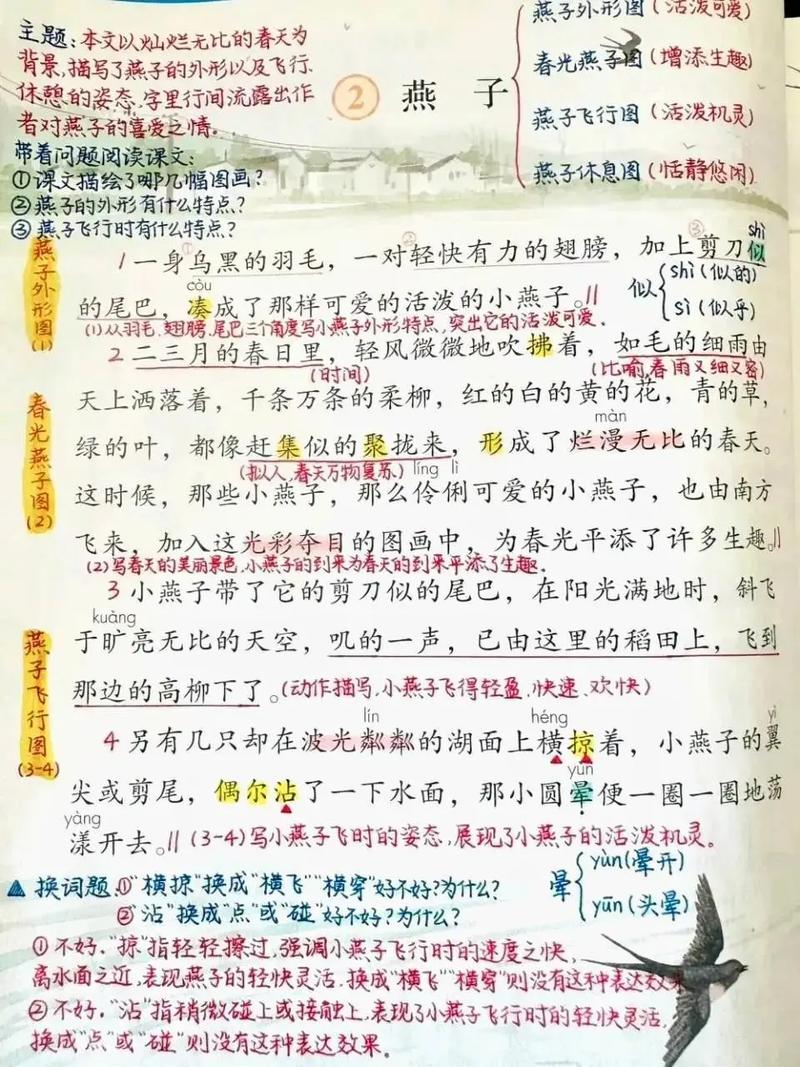 主题:本文以灿烂无比的春天为
背景,描写了燕子的外形以及飞行、
休憩的姿态,字里行间流露出作
者对燕子的喜爱之情。
带着问题阅读课文:
①课文描绘了哪几幅图画?
②燕子的外形有什么特点?
③燕子飞行时有什么特点?
2 燕子
燕子外形图(活泼可爱)
春光燕子图(增添生趣)
燕子飞行图(活泼机灵)
燕子休息图(恬静悠闲)
燕子外形图(1)
① ② ③ shì
1一身乌黑的羽毛,一对轻快有力的翅膀,加上剪刀似
còu
的尾巴,凑成了那样可爱的活泼的小燕子。//
似 shì(似的)
sì(似乎)
(1)从羽毛、翅膀、尾巴三个角度写小燕子外形特点,突出它的活泼可爱.
2二三月的春日里,轻风微微地吹拂着,如毛的细雨由
(时间) (比喻,春雨又细又密)
春光燕子图(2)
天上洒落着,千条万条的柔柳,红的白的黄的花,青的草,
màn
绿的叶,都像赶集似的聚拢来,形成了烂漫无比的春天。
(拟人,春天万物复苏) líng lì
这时候,那些小燕子,那么伶俐可爱的小燕子,也由南方
飞来,加入这光彩夺目的图画中,为春光平添了许多生趣。//
(2)写春天的美丽景色,小燕子的到来为春天的到来平添了生趣.
3小燕子带了它的剪刀似的尾巴,在阳光满地时,斜飞
kuàng
于旷亮无比的天空,叽的一声,已由这里的稻田上,飞到
燕子飞行图(3-4)
那边的高柳下了。(动作描写,小燕子飞得轻盈、快速、欢快)
lín héng yì
4另有几只却在波光粼粼的湖面上横掠着,小燕子的翼
yùn
尖或剪尾,偶尔沾了一下水面,那小圆晕便一圈一圈地荡
yàng
漾开去。//(3-4)写小燕子飞时的姿态,展现了小燕子的活泼机灵。
换词题:①"横掠"换成"横飞""横穿"好不好?为什么?
②"沾"换成"点"或"碰"好不好?为什么?
晕 yùn(晕开)
yūn(头晕)
①不好."掠"指轻轻擦过,强调小燕子飞行时的速度之快,
离水面之近,表现燕子的轻快灵活.换成"横飞""横穿"则没有这种表达效果
②不好."沾"指稍微碰上或接触上.表现了小燕子飞行时的轻快灵活,
换成"点"或"碰"则没有这种表达效果。